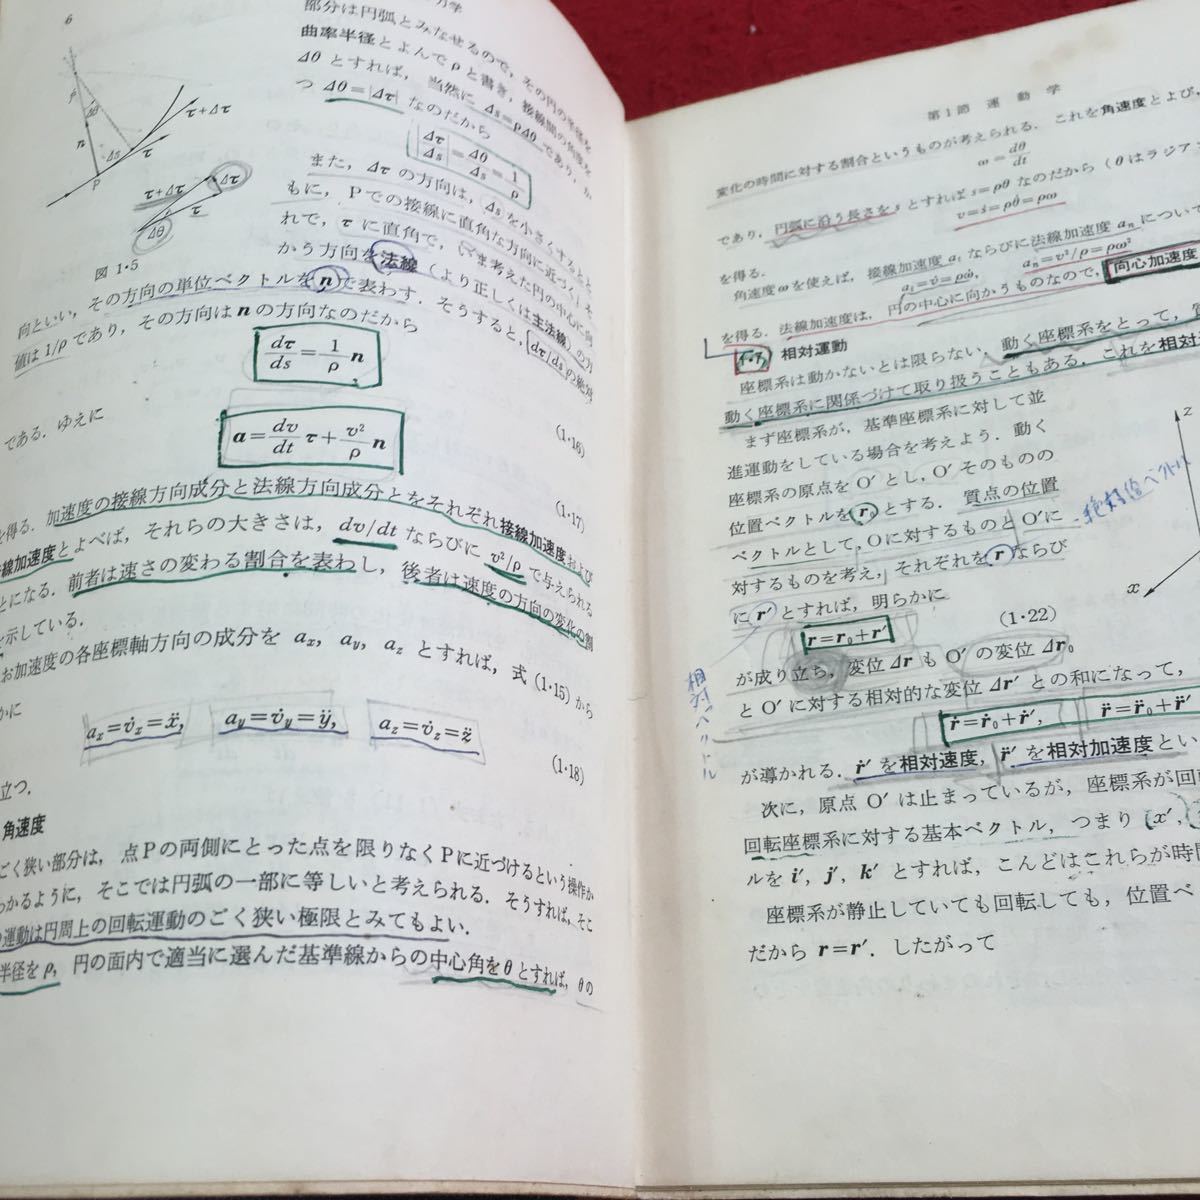 6
力学
部分は円弧とみなせるので，その円の半径を
曲率半径とよんでρと書き，接線間の角度を
Δθとすれば，当然に Δs=ρΔθ であり，か
つ Δθ=|Δτ| なのだから
|Δτ/Δs|=Δθ/Δs=1/ρ
また，Δτの方向は，Δsを小さくするとと
もに，Pでの接線に直角な方向に近づく．そ
れで，τに直角で，いま考えた円の中心に向
かう方向を法線（より正しくは主法線）の方
ρ
Δθ
n
Δs
P
τ
τ+Δτ
τ+Δτ
Δτ
τ
Δθ
図 1・5
向といい，その方向の単位ベクトルをnで表わす．そうすると，|dτ/ds|の絶対
値は1/ρであり，その方向はnの方向なのだから
dτ/ds=1/ρ n
(1・16)
である．ゆえに
a=dv/dt τ+v²/ρ n
(1・17)
を得る．加速度の接線方向成分と法線方向成分とをそれぞれ接線加速度および
線加速度とよべば，それらの大きさは，dv/dt ならびに v²/ρ で与えられる
とになる．前者は速さの変わる割合を表わし，後者は速度の方向の変化の割
を示している．
お加速度の各座標軸方向の成分を aₓ，a_y，a_z とすれば，式(1・15)から
かに
aₓ=v̇ₓ=ẍ, a_y=v̇_y=ÿ, a_z=v̇_z=z̈
(1・18)
立つ．
角速度
ごく狭い部分は，点Pの両側にとった点を限りなくPに近づけるという操作か
わかるように，そこでは円弧の一部に等しいと考えられる．そうすれば，そこ
運動は円周上の回転運動のごく狭い極限とみてもよい．
半径をρ，円の面内で適当に選んだ基準線からの中心角をθとすれば，θの
第1節 運動学
変化の時間に対する割合というものが考えられる．これを角速度とよび，
ω=dθ/dt
であり，円弧に沿う長さをsとすればs=ρθなのだから（θはラジアン
v=ṡ=ρθ̇=ρω
を得る．
角速度ωを使えば，接線加速度 aₜ ならびに法線加速度 aₙ について
aₜ=v̇=ρω̇, aₙ=v²/ρ=ρω²
を得る．法線加速度は，円の中心に向かうものなので，向心加速度
相対運動
座標系は動かないとは限らない．動く座標系をとって，
動く座標系に関係づけて取り扱うこともある．これを相対
まず座標系が，基準座標系に対して並
進運動をしている場合を考えよう．動く
座標系の原点をO′とし，O′そのものの
位置ベクトルをrとする．質点の位置
ベクトルとして，Oに対するものとO′に
対するものを考え，それぞれをrならび
にr′とすれば，明らかに
r=r₀+r′
(1・22)
が成り立ち，変位ΔrもO′の変位Δr₀
とO′に対する相対的な変位Δr′との和になって，
ṙ=ṙ₀+ṙ′, r̈=r̈₀+r̈′
が導かれる．ṙ′を相対速度，r̈′を相対加速度とい
次に，原点O′は止まっているが，座標系が回
回転座標系に対する基本ベクトル，つまり(x′,
ルを i′, j′, k′ とすれば，こんどはこれらが時
座標系が静止していても回転しても，位置ベ
だから r=r′．したがって
z
x
相対ベクトル